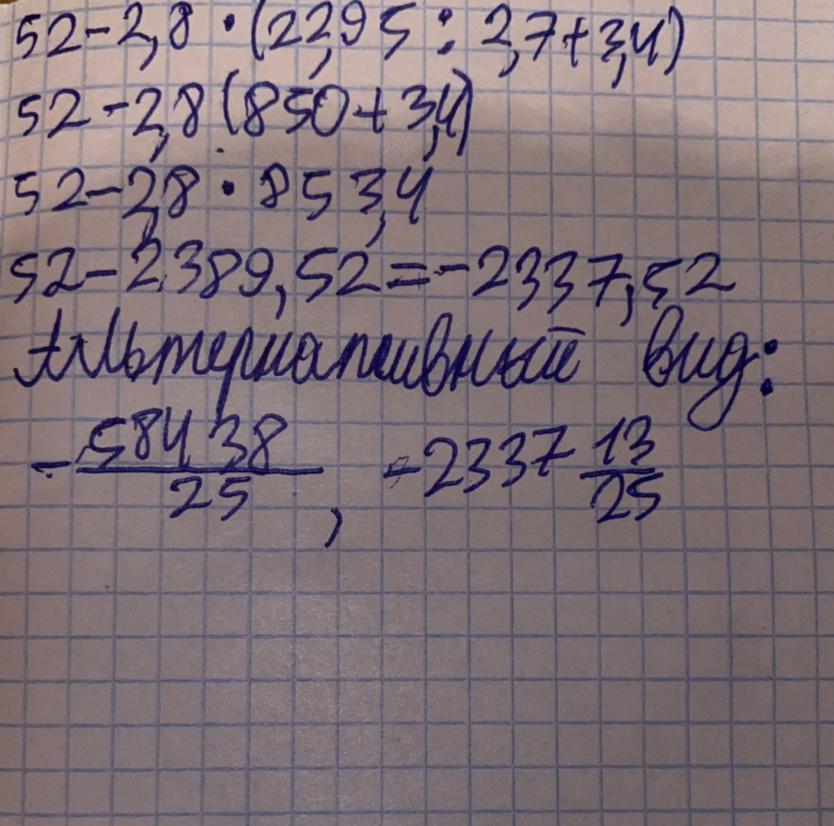 52-2,8·(22,95:2,7+3,4)
52-2,8(850+3,4)
52-2,8·853,4
52-2389,52=-2337,52
Альтернативный вид:
-58438/25, -2337 13/25